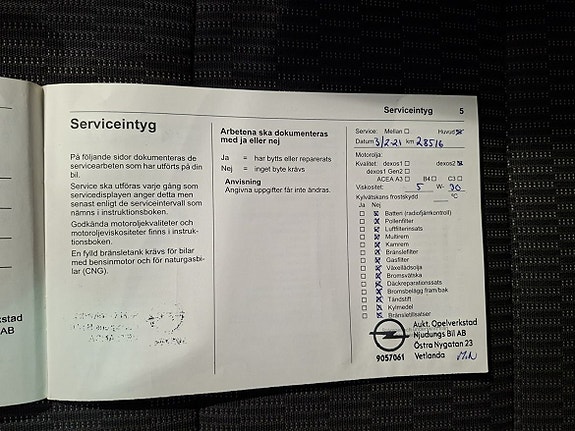 Serviceintyg 5
Serviceintyg
På följande sidor dokumenteras de
servicearbeten som har utförts på din
bil.
Service ska utföras varje gång som
servicedisplayen anger detta men
senast enligt de serviceintervall som
nämns i instruktionsboken.
Godkända motoroljekvaliteter och
motoroljeviskositeter finns i instruk-
tionsboken.
En fylld bränsletank krävs för bilar
med bensinmotor och för naturgasbi-
lar (CNG).
Arbetena ska dokumenteras
med ja eller nej
Ja = har bytts eller reparerats
Nej = inget byte krävs
Anvisning
Angivna uppgifter får inte ändras.
Service: Mellan ☐ Huvud ☒
Datum 3/2-21 km 28516
Motorolja:
Kvalitet: dexos1 ☐ dexos2 ☒
dexos1 Gen2 ☐
ACEA A3 ☐ B4 ☐ C3 ☐
Viskositet: 5 W- 30
Kylvätskans frostskydd °C
Ja Nej
☐ ☒ Batteri (radiofjärrkontroll)
☐ ☒ Pollenfilter
☐ ☒ Luftfilterinsats
☐ ☒ Multirem
☐ ☒ Kamrem
☐ ☒ Bränslefilter
☐ ☒ Gasfilter
☐ ☒ Växellådsolja
☐ ☒ Bromsvätska
☐ ☒ Däckreparationssats
☐ ☒ Bromsbelägg fram/bak
☐ ☒ Tändstift
☐ ☒ Kylmedel
☐ ☒ Bränsletillsatser
Aukt. Opelverkstad
Njudungs Bil AB
Östra Nygatan 23
9057061 Vetlanda
kstad
AB